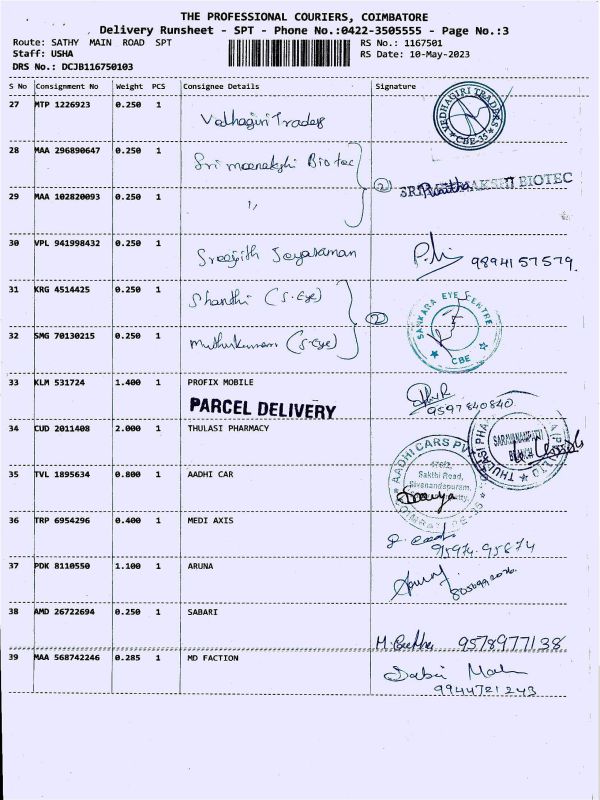 THE PROFESSIONAL COURIERS, COIMBATORE
Delivery Runsheet - SPT - Phone No.:0422-3505555 - Page No.:3
Route: SATHY MAIN ROAD SPT RS No.: 1167501
Staff: USHA RS Date: 10-May-2023
DRS No.: DCJB116750103
S No Consignment No Weight PCS Consignee Details Signature
27 MTP 1226923 0.250 1 Vedhagiri Traders VEDHAGIRI TRADERS CBE-35
28 MAA 296890647 0.250 1 Sri meenakshi Biotec
29 MAA 102820093 0.250 1 1, 2 BIOTEC
30 VPL 941998432 0.250 1 Sreejith Jeyaraman 9894157579.
31 KRG 4514425 0.250 1 Shanthi (S.Eye) 2 SANKARA EYE CENTRE CBE
32 SMG 70130215 0.250 1 Muthukumar (S-Eye)
33 KLM 531724 1.400 1 PROFIX MOBILE 9597840840
PARCEL DELIVERY
34 CUD 2011408 2.000 1 THULASI PHARMACY SARAVANAMPATTI BRANCH
35 TVL 1895634 0.800 1 AADHI CAR AADHI CARS Sakthi Road, Sivanandapuram,
36 TRP 6954296 0.400 1 MEDI AXIS 95974.95674
37 PDK 8110550 1.100 1 ARUNA
38 AMD 26722694 0.250 1 SABARI 9578977138
39 MAA 568742246 0.285 1 MD FACTION 9944721243